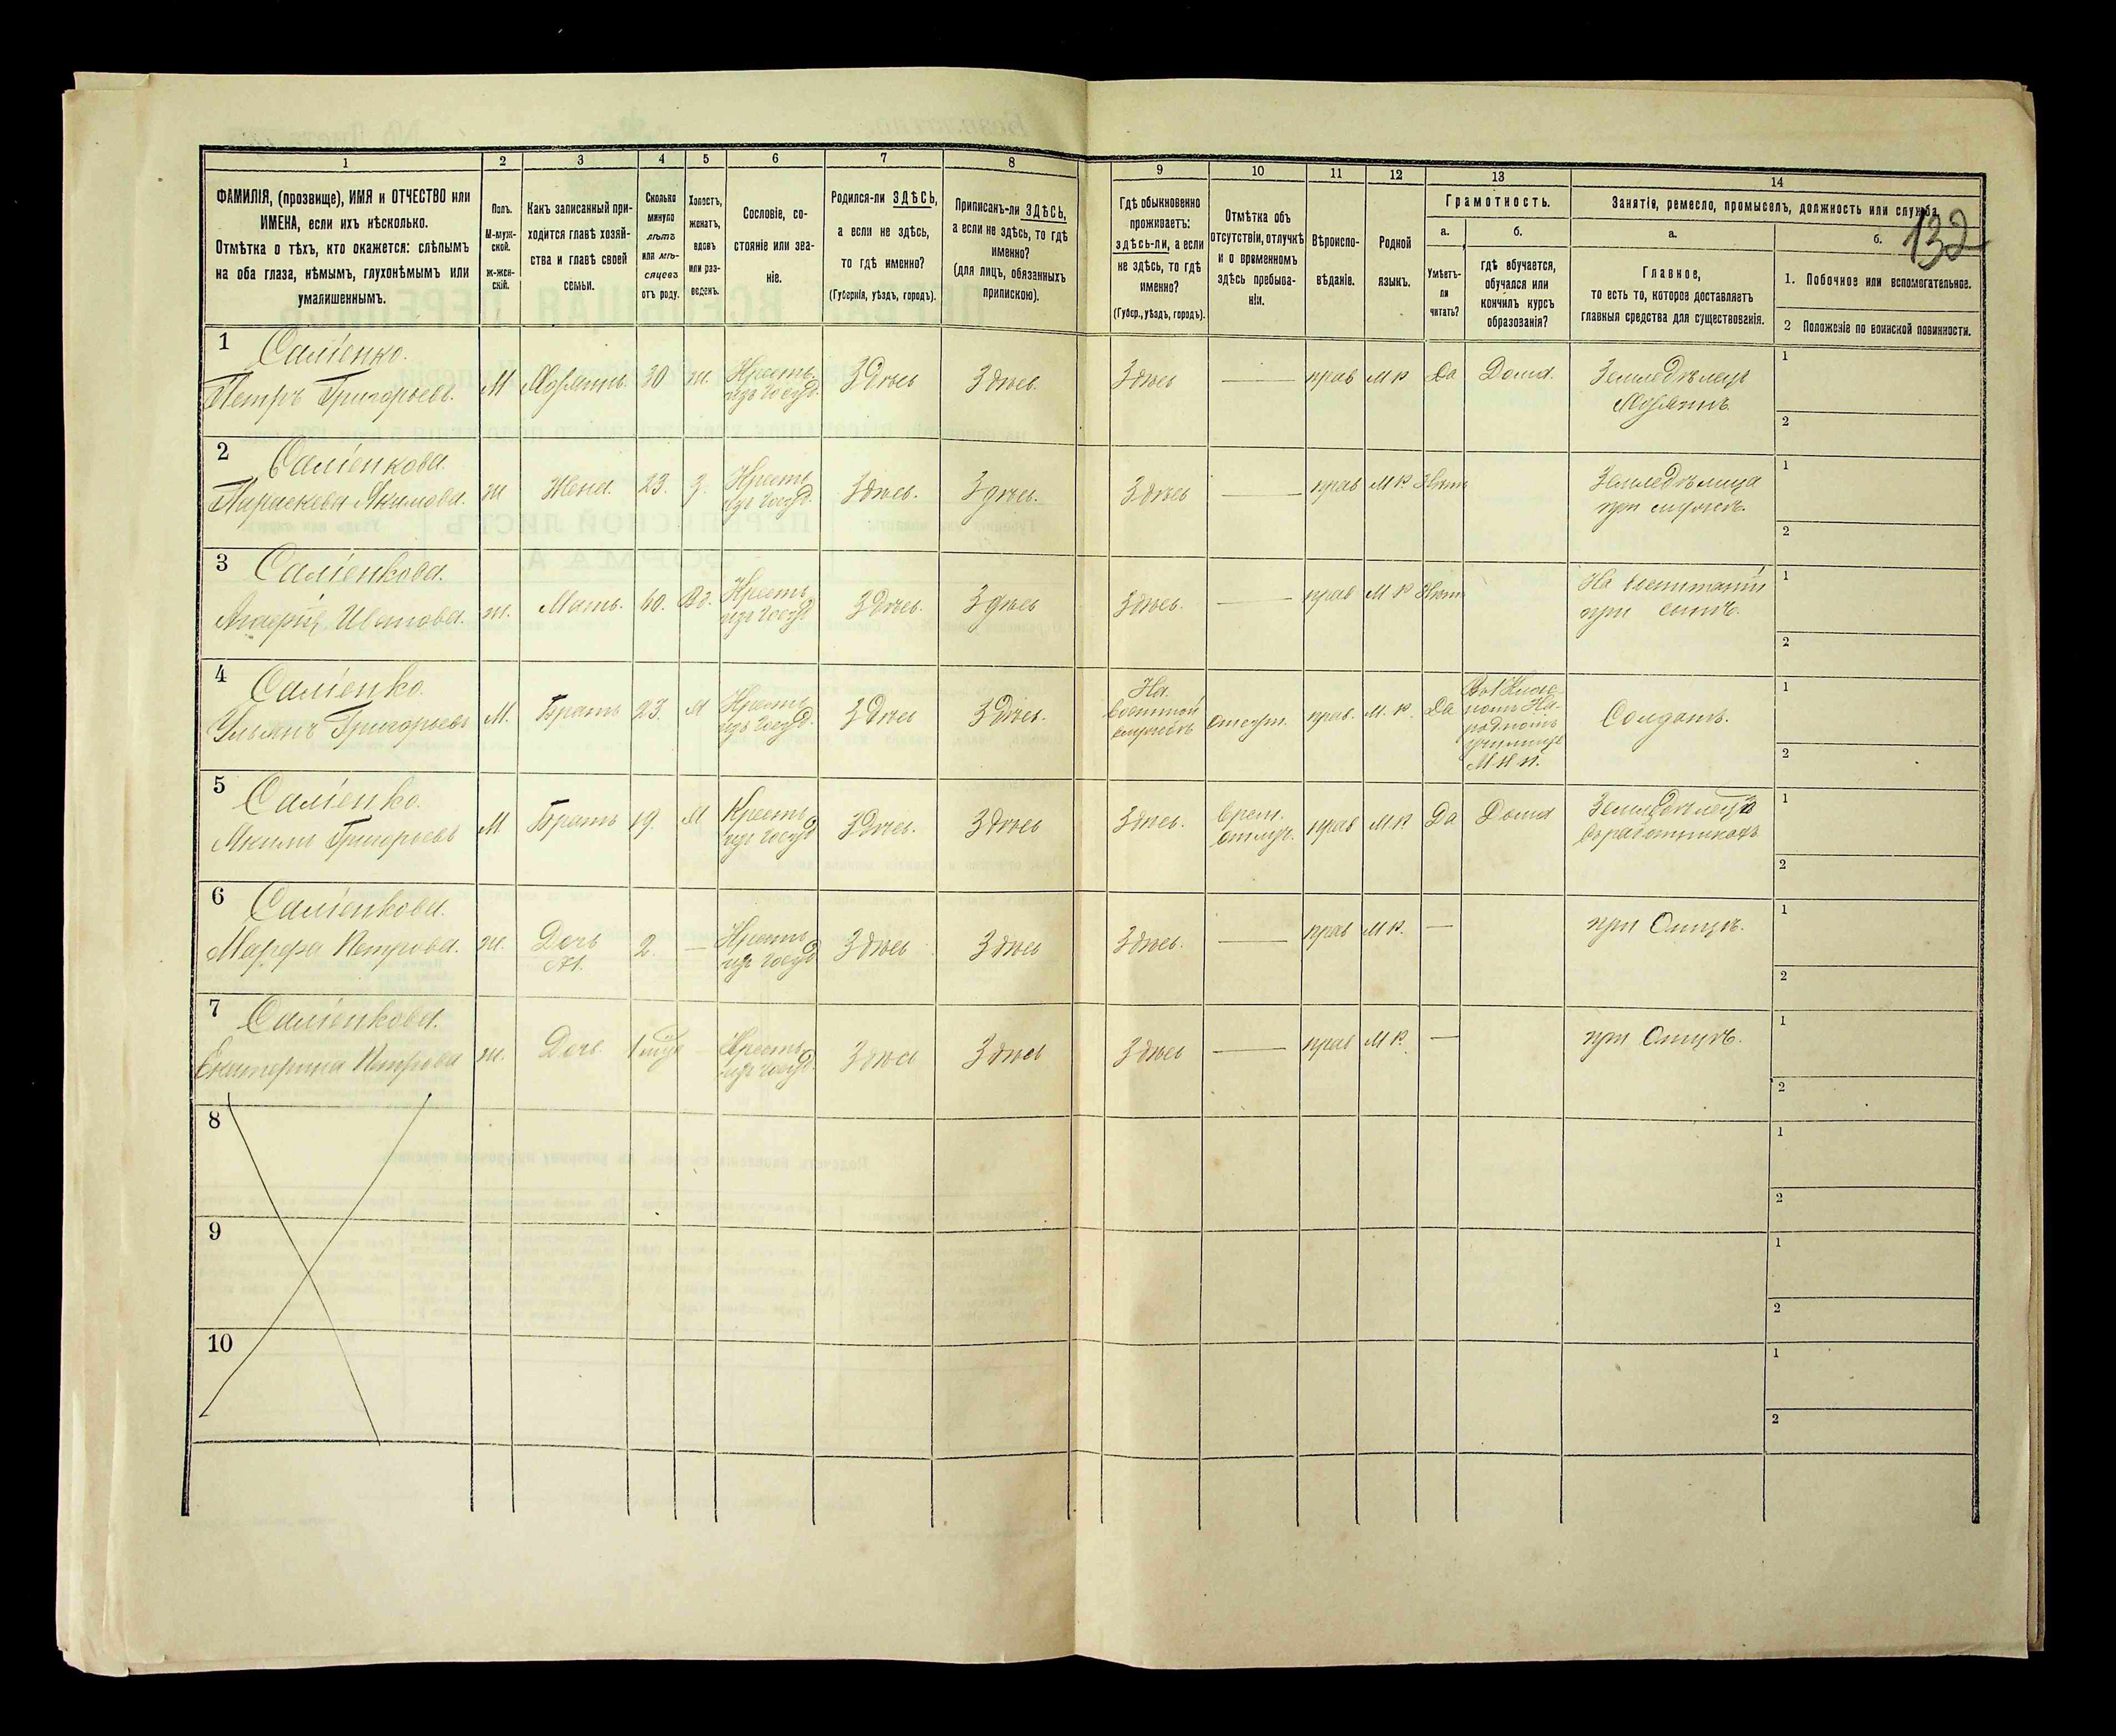 132
1
2
3
4
5
6
7
8
9
10
11
12
13
14
ФАМИЛІЯ, (прозвище), ИМЯ и ОТЧЕСТВО или
ИМЕНА, если ихъ нѣсколько.
Отмѣтка о тѣхъ, кто окажется: слѣпымъ
на оба глаза, нѣмымъ, глухонѣмымъ или
умалишеннымъ.
Полъ.
М-муж-
ской.
ж-жен-
скій.
Какъ записанный при-
ходится главѣ хозяй-
ства и главѣ своей
семьи.
Сколько
минуло
лѣтъ
или мѣ-
сяцевъ
отъ роду.
Холостъ,
женатъ,
вдовъ
или раз-
веденъ.
Сословіе, со-
стояніе или зва-
ніе.
Родился-ли ЗДѢСЬ,
а если не здѣсь,
то гдѣ именно?
(Губернія, уѣздъ, городъ).
Приписанъ-ли ЗДѢСЬ,
а если не здѣсь, то гдѣ
именно?
(для лицъ, обязанныхъ
припискою).
Гдѣ обыкновенно
проживаетъ:
здѣсь-ли, а если
не здѣсь, то гдѣ
именно?
(Губер., уѣздъ, городъ).
Отмѣтка объ
отсутствіи, отлучкѣ
и о временномъ
здѣсь пребыва-
ніи.
Вѣроиспо-
вѣданіе.
Родной
языкъ.
Грамотность.
а.
Умѣетъ-
ли
читать?
б.
гдѣ обучается,
обучался или
кончилъ курсъ
образованія?
Занятіе, ремесло, промыселъ, должность или служба.
а.
Главное,
то есть то, которое доставляетъ
главныя средства для существованія.
б.
1. Побочное или вспомогательное.
2 Положеніе по воинской повинности.
1 Саліенко.
Петръ Григорьевъ. М Хозяинъ 30 ж. Крестъ. изъ госуд. Здѣсь Здѣсь Здѣсь — прав М Р Да Дома. Земледѣлецъ
Хозяинъ
1
2
2 Саліенкова.
Параскева Якимова. ж Жена. 23. З. Крестъ изъ госуд. Здѣсь. Здѣсь. Здѣсь — прав М Р. Нѣтъ Земледѣлица
при мужѣ.
1
2
3 Саліенкова.
Иванова. ж. Мать. 60. Вд. Крестъ изъ госуд Здѣсь. Здѣсь Здѣсь. — прав М Р Нѣтъ На воспитаніи
при сынѣ.
1
2
4 Саліенко.
Ульянъ Григорьевъ М. Братъ 23. Х Крестъ изъ госуд. Здѣсь Здѣсь. На
военной
службѣ отсут. прав. М. Р. Да Народномъ
училищѣ
М Н П.
Солдатъ.
1
2
5 Саліенко.
Григорьевъ М Братъ 19. Х Крестъ изъ госуд Здѣсь. Здѣсь Здѣсь. Врем.
отлуч. прав М.Р. Да Дома Земледѣлецъ
1
2
6 Саліенкова.
Марфа Петрова. ж. Дочь 2. — Крестъ изъ госуд Здѣсь Здѣсь Здѣсь. — прав М Р. — при Отцѣ.
1
2
7 Саліенкова.
Екатерина Петрова ж. Дочь. 1 — Крестъ изъ госуд. Здѣсь Здѣсь Здѣсь — прав М Р. — при Отцѣ.
1
2
8
1
2
9
1
2
10
1
2